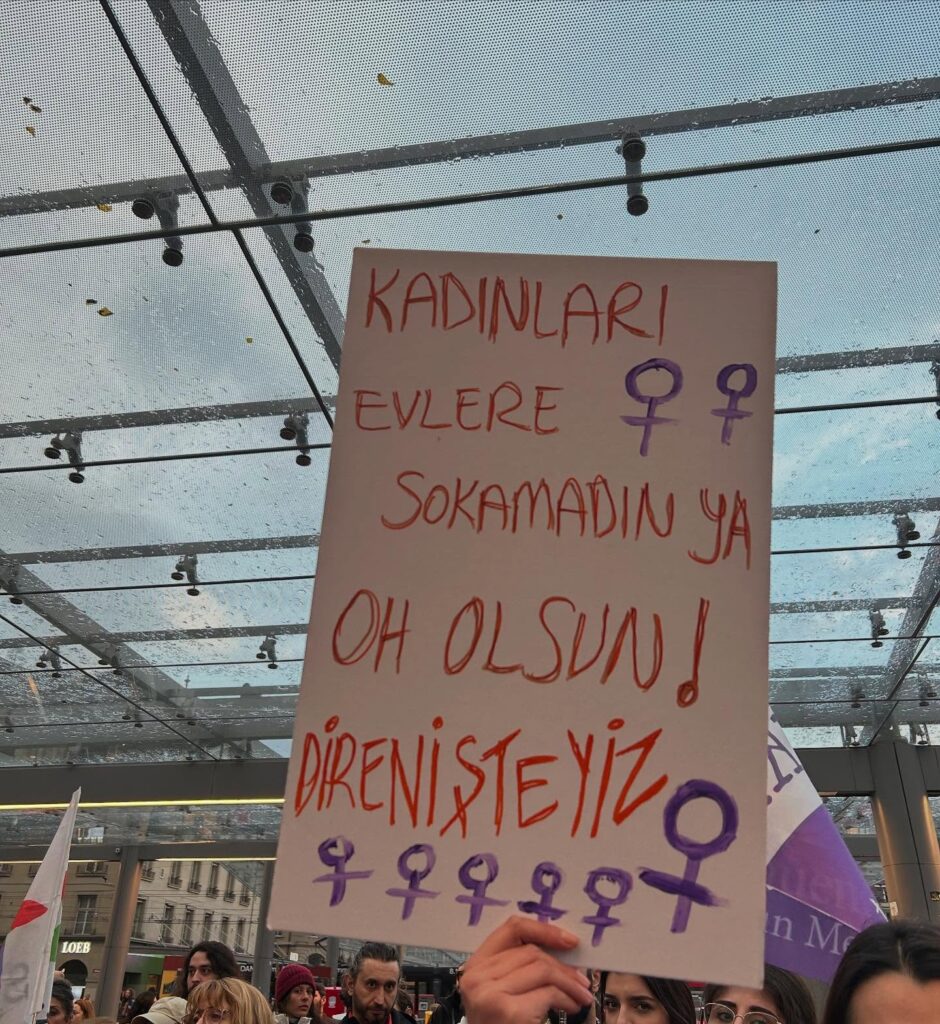 KADINLARI
EVLERE
SOKAMADIN YA
OH OLSUN!
DİRENİŞTEYİZ
LOEB